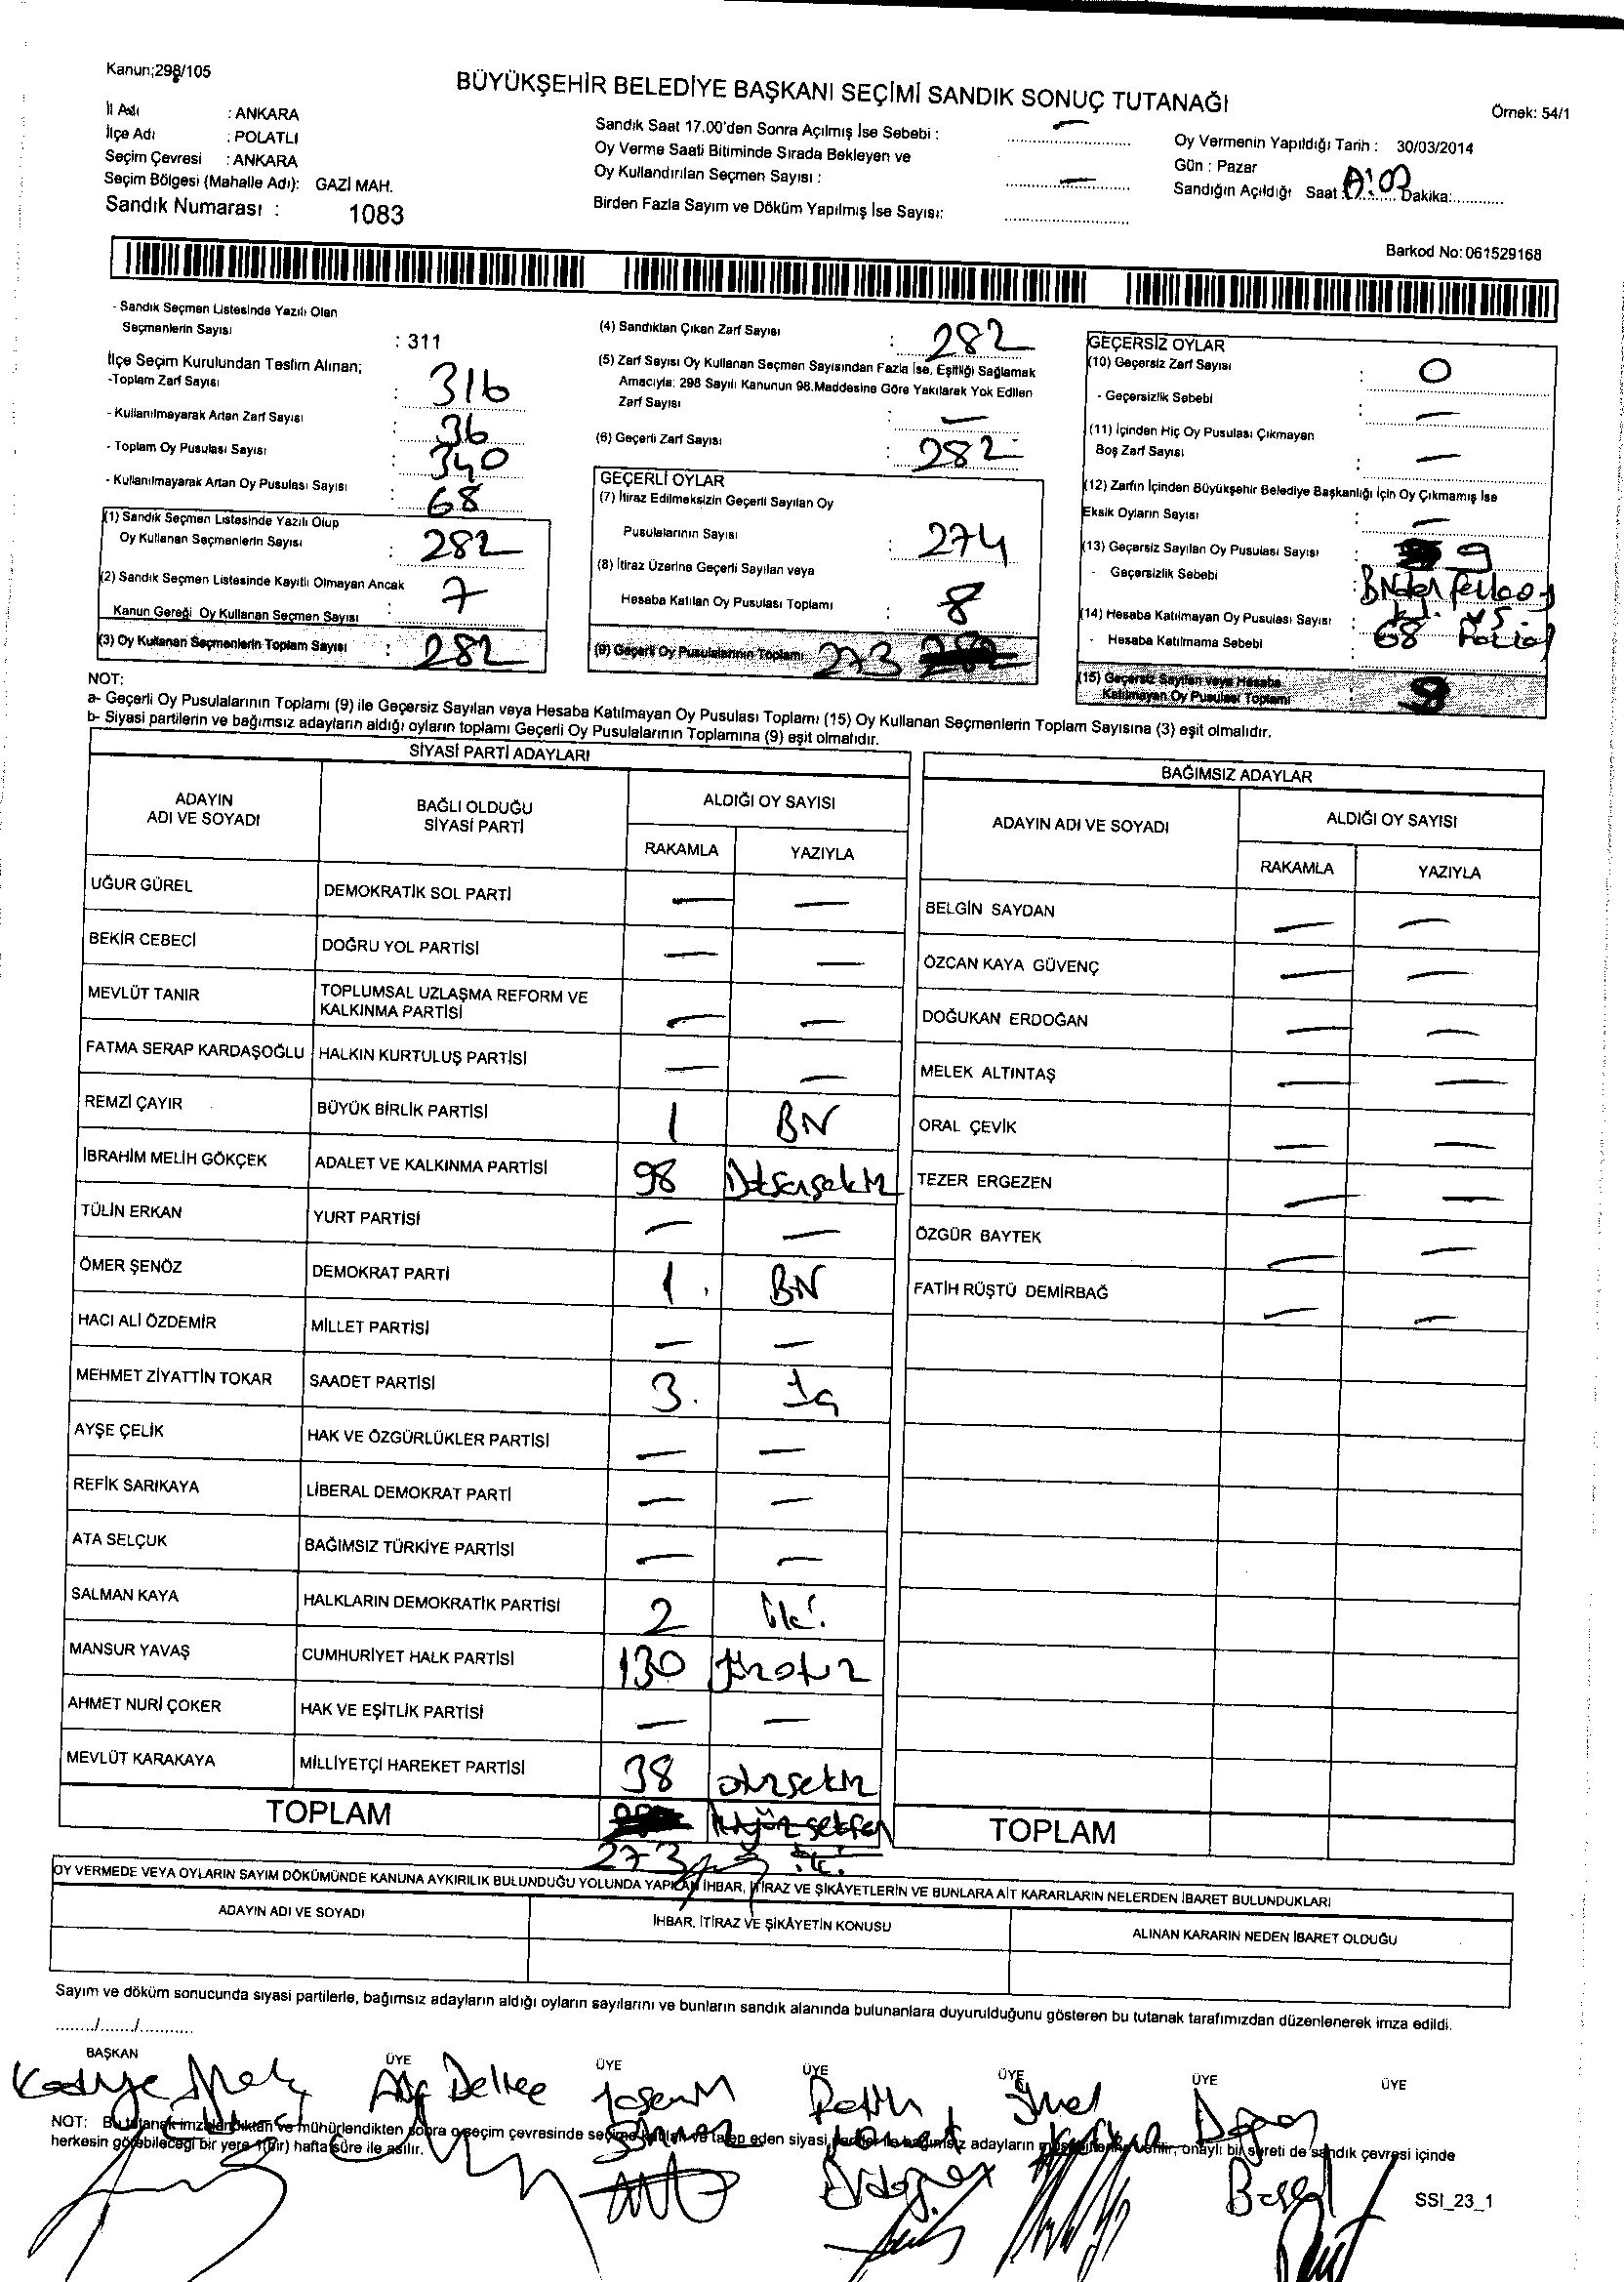 Kanun;298/105
BÜYÜKŞEHİR BELEDİYE BAŞKANI SEÇİMİ SANDIK SONUÇ TUTANAĞI
Örnek: 54/1
İl Adı : ANKARA
İlçe Adı : POLATLI
Seçim Çevresi : ANKARA
Seçim Bölgesi (Mahalle Adı): GAZİ MAH.
Sandık Numarası : 1083
Sandık Saat 17.00'den Sonra Açılmış İse Sebebi : —
Oy Verme Saati Bitiminde Sırada Bekleyen ve
Oy Kullandırılan Seçmen Sayısı : —
Birden Fazla Sayım ve Döküm Yapılmış İse Sayısı:
Oy Vermenin Yapıldığı Tarih : 30/03/2014
Gün : Pazar
Sandığın Açıldığı Saat Dakika:
Barkod No: 061529168
- Sandık Seçmen Listesinde Yazılı Olan
Seçmenlerin Sayısı : 311
İlçe Seçim Kurulundan Teslim Alınan;
-Toplam Zarf Sayısı : 316
- Kullanılmayarak Artan Zarf Sayısı : 36
- Toplam Oy Pusulası Sayısı : 340
- Kullanılmayarak Artan Oy Pusulası Sayısı : 68
(1) Sandık Seçmen Listesinde Yazılı Olup
Oy Kullanan Seçmenlerin Sayısı : 282
(2) Sandık Seçmen Listesinde Kayıtlı Olmayan Ancak
Kanun Gereği Oy Kullanan Seçmen Sayısı : 7
(3) Oy Kullanan Seçmenlerin Toplam Sayısı : 282
(4) Sandıktan Çıkan Zarf Sayısı : 282
(5) Zarf Sayısı Oy Kullanan Seçmen Sayısından Fazla İse, Eşitliği Sağlamak
Amacıyla; 298 Sayılı Kanunun 98.Maddesine Göre Yakılarak Yok Edilen
Zarf Sayısı : —
(6) Geçerli Zarf Sayısı : 282
GEÇERLİ OYLAR
(7) İtiraz Edilmeksizin Geçerli Sayılan Oy
Pusulalarının Sayısı : 274
(8) İtiraz Üzerine Geçerli Sayılan veya
Hesaba Katılan Oy Pusulası Toplamı : 8
(9) Geçerli Oy Pusulalarının Toplamı 273
GEÇERSİZ OYLAR
(10) Geçersiz Zarf Sayısı : 0
- Geçersizlik Sebebi : —
(11) İçinden Hiç Oy Pusulası Çıkmayan
Boş Zarf Sayısı : —
(12) Zarfın İçinden Büyükşehir Belediye Başkanlığı İçin Oy Çıkmamış İse
Eksik Oyların Sayısı : —
(13) Geçersiz Sayılan Oy Pusulası Sayısı : 9
- Geçersizlik Sebebi :
(14) Hesaba Katılmayan Oy Pusulası Sayısı : 68
- Hesaba Katılmama Sebebi
(15) Geçersiz Sayılan veya Hesaba
Katılmayan Oy Pusulası Toplamı : 9
NOT:
a- Geçerli Oy Pusulalarının Toplamı (9) ile Geçersiz Sayılan veya Hesaba Katılmayan Oy Pusulası Toplamı (15) Oy Kullanan Seçmenlerin Toplam Sayısına (3) eşit olmalıdır.
b- Siyasi partilerin ve bağımsız adayların aldığı oyların toplamı Geçerli Oy Pusulalarının Toplamına (9) eşit olmalıdır.
SİYASİ PARTİ ADAYLARI
ADAYIN ADI VE SOYADI
BAĞLI OLDUĞU SİYASİ PARTİ
ALDIĞI OY SAYISI
RAKAMLA YAZIYLA
UĞUR GÜREL DEMOKRATİK SOL PARTİ — —
BEKİR CEBECİ DOĞRU YOL PARTİSİ — —
MEVLÜT TANIR TOPLUMSAL UZLAŞMA REFORM VE KALKINMA PARTİSİ — —
FATMA SERAP KARDAŞOĞLU HALKIN KURTULUŞ PARTİSİ — —
REMZİ ÇAYIR BÜYÜK BİRLİK PARTİSİ 1 BİR
İBRAHİM MELİH GÖKÇEK ADALET VE KALKINMA PARTİSİ 98
TÜLİN ERKAN YURT PARTİSİ — —
ÖMER ŞENÖZ DEMOKRAT PARTİ 1. BİR
HACI ALİ ÖZDEMİR MİLLET PARTİSİ — —
MEHMET ZİYATTİN TOKAR SAADET PARTİSİ 3. Üç
AYŞE ÇELİK HAK VE ÖZGÜRLÜKLER PARTİSİ — —
REFİK SARIKAYA LİBERAL DEMOKRAT PARTİ — —
ATA SELÇUK BAĞIMSIZ TÜRKİYE PARTİSİ — —
SALMAN KAYA HALKLARIN DEMOKRATİK PARTİSİ 2 iki.
MANSUR YAVAŞ CUMHURİYET HALK PARTİSİ 130 yüzotuz
AHMET NURİ ÇOKER HAK VE EŞİTLİK PARTİSİ — —
MEVLÜT KARAKAYA MİLLİYETÇİ HAREKET PARTİSİ 38 otuzsekiz
TOPLAM
273
BAĞIMSIZ ADAYLAR
ADAYIN ADI VE SOYADI
ALDIĞI OY SAYISI
RAKAMLA YAZIYLA
BELGİN SAYDAN — —
ÖZCAN KAYA GÜVENÇ — —
DOĞUKAN ERDOĞAN — —
MELEK ALTINTAŞ — —
ORAL ÇEVİK — —
TEZER ERGEZEN — —
ÖZGÜR BAYTEK — —
FATİH RÜŞTÜ DEMİRBAĞ — —
TOPLAM
OY VERMEDE VEYA OYLARIN SAYIM DÖKÜMÜNDE KANUNA AYKIRILIK BULUNDUĞU YOLUNDA YAPILAN İHBAR, İTİRAZ VE ŞİKÂYETLERİN VE BUNLARA AİT KARARLARIN NELERDEN İBARET BULUNDUKLARI
ADAYIN ADI VE SOYADI
İHBAR, İTİRAZ VE ŞİKÂYETİN KONUSU
ALINAN KARARIN NEDEN İBARET OLDUĞU
Sayım ve döküm sonucunda siyasi partilerle, bağımsız adayların aldığı oyların sayılarını ve bunların sandık alanında bulunanlara duyurulduğunu gösteren bu tutanak tarafımızdan düzenlenerek imza edildi.
......../......./...........
BAŞKAN ÜYE ÜYE ÜYE ÜYE ÜYE ÜYE
NOT: Bu tutanak imzalandıktan ve mühürlendikten sonra o seçim çevresinde seçime katılan ve talep eden siyasi partiler ile bağımsız adayların müşahitlerine verilir, onaylı bir sureti de sandık çevresi içinde
herkesin görebileceği bir yere 1(bir) hafta süre ile asılır.
SSI_23_1